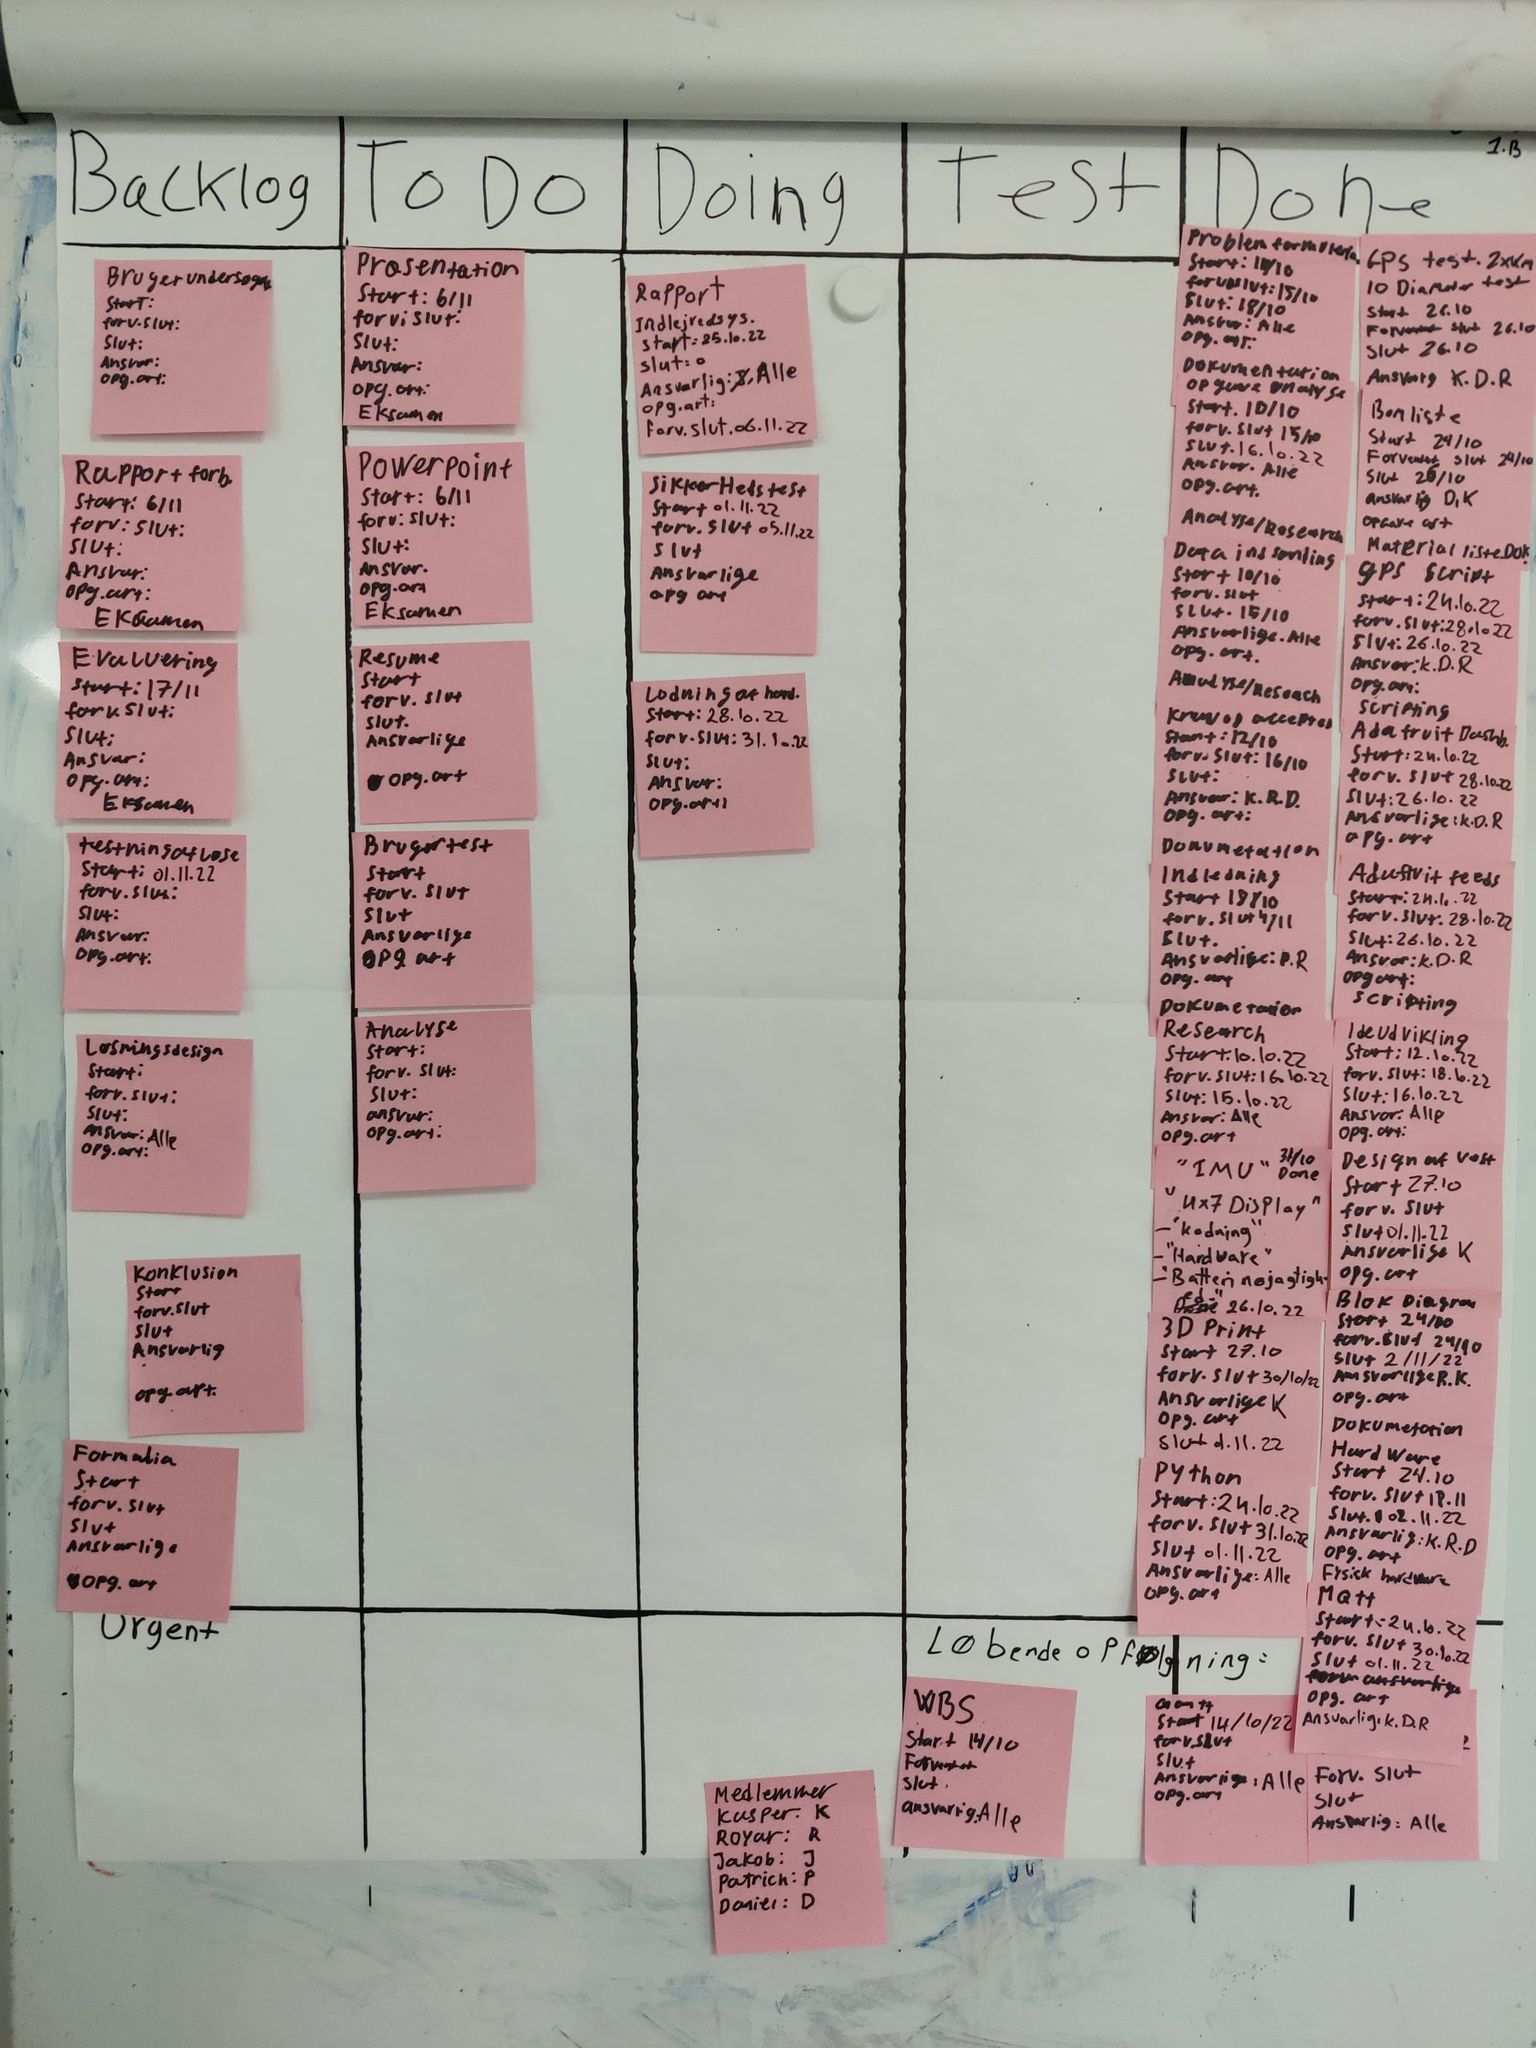 1.B
Backlog
To Do
Doing
Test
Done
Brugerundersøge
Start:
forv.slut:
Slut:
Ansvar:
opg.art:
Rapport forb.
Start: 6/11
forv: Slut:
Slut:
Ansvar:
opg.art:
Eksamen
Evaluering
Start: 17/11
forv. Slut:
Slut:
Ansvar:
opg.art:
Eksamen
testning af løse
Start: 01.11.22
forv. slut:
Slut:
Ansvar:
opg.art.
Løsningsdesign
Start:
forv. slut:
Slut:
Ansvar: Alle
opg.art:
Konklusion
Start
forv.slut
Slut
Ansvarlig
opg.art.
Formalia
Start
forv. slut
Slut
Ansvarlige
opg. art
Urgent
Præsentation
Start: 6/11
forvi slut:
Slut:
Ansvar:
opg.art:
Eksamen
Powerpoint
Start: 6/11
forv: slut:
Slut:
Ansvar.
opg.art
Eksamen
Resume
Start
forv. slut
Slut.
Ansvarlige
opg.art
Brugertest
Start
forv. slut
Slut
Ansvarlige
opg art
Analyse
Start:
forv. slut:
Slut:
ansvar:
opg.art:
Rapport
Indlejredsys.
start: 25.10.22
slut: 0
Ansvarlig: Alle
opg.art:
forv. slut. 06.11.22
Sikkerhedstest
Start 01.11.22
forv. slut 05.11.22
Slut
Ansvarlige
opg art
Lodning af hard.
Start: 28.10.22
forv. slut: 31.10.22
Slut:
Ansvar:
opg.art:
Start: 10/10
forv.slut: 15/10
Slut: 18/10
Ansvar: Alle
opg. art:
Dokumentation
opgave analyse
Start. 10/10
forv. slut 15/10
Slut. 16.10.22
Ansvar. Alle
opg. art.
Analyse/Research
Data indsamling
Start 10/10
forv. slut
Slut. 15/10
Ansvarlige. Alle
opg. art.
Analyse/Research
Krav og accepttes
Start: 12/10
forv. slut: 16/10
Slut:
Ansvar: K.R.D.
opg. art:
Dokumetation
Indledning
Start 18/10
forv. slut 4/11
Slut.
Ansvarlige: P.R
opg. art
Dokumetation
Research
Start: 10.10.22
forv. slut: 16.10.22
Slut: 15.10.22
Ansvar: Alle
opg.art
"IMU" 31/10 Done
"4x7 Display"
- "kodning"
- "Hardware"
- "Batteri nøjagtigh-
ed." 26.10.22
3D Print
Start 27.10
forv. slut 30/10/22
Ansvarlige K
opg. art
Slut 1.11.22
Python
Start: 24.10.22
forv. slut 31.10.22
Slut 01.11.22
Ansvarlige: Alle
opg.art
GPS test. 2xKm
10 Diameter test
Start 26.10
Forventet slut 26.10
Slut 26.10
Ansvarlig K.D.R
Bom liste
Start 24/10
Forventet slut 24/10
Slut 28/10
ansvarlig D,K
opgave art
Material liste.DOK
GPS Script
Start: 24.10.22
forv. slut: 28.10.22
Slut: 26.10.22
Ansvar: K.D.R
opg.art:
Scripting
Adafruit Dashb.
Start: 24.10.22
forv. slut 28.10.22
Slut: 26.10.22
Ansvarlige: K.D.R
opg. art
Adafruit feeds
Start: 24.10.22
forv. slut. 28.10.22
Slut: 26.10.22
Ansvar: K.D.R
opgart:
Scripting
Ideudvikling
Start: 12.10.22
forv. slut: 18.10.22
Slut: 16.10.22
Ansvar: Alle
opg.art:
Design af vest
Start 27.10
forv. slut
Slut 01.11.22
Ansvarlige K
opg. art
Blok Diagram
Start 24/10
forv. slut 24/10
Slut 2/11/22
Ansvarlige R.K.
opg. art
Dokumetation
Hardware
Start 24.10
forv. slut 18.11
Slut. 02.11.22
Ansvarlig: K.R.D
opg. art
Fysisk hardware
MQtt
Start: 24.10.22
forv. slut 30.10.22
Slut 01.11.22
opg. art
Ansvarlig: K.D.R
Løbende opfølgning:
WBS
Start 14/10
Forventet
Slut.
ansvarlig: Alle
Gantt
Start 14/10/22
forv.slut
Slut
Ansvarlige: Alle
opg.art
Forv. slut
Slut
Ansvarlig: Alle
Medlemmer
Kasper: K
Royar: R
Jakob: J
Patrich: P
Daniel: D